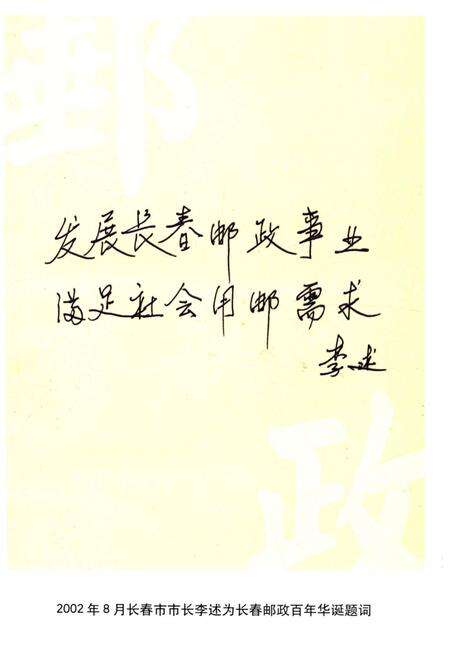 郵
发展长春邮政事业
满足社会用邮需求
李述
政
2002年8月长春市市长李述为长春邮政百年华诞题词